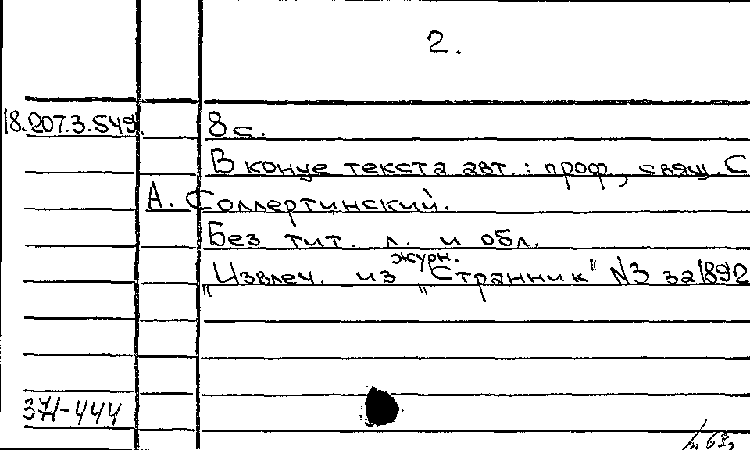 2.
18.207.3.549. 8 с.
В конце текста авт.: проф., свящ. С
А. Соллертинский.
Без тит. л. и обл.
журн.
"Извлеч. из "Странник" №3 за 1892
371-444